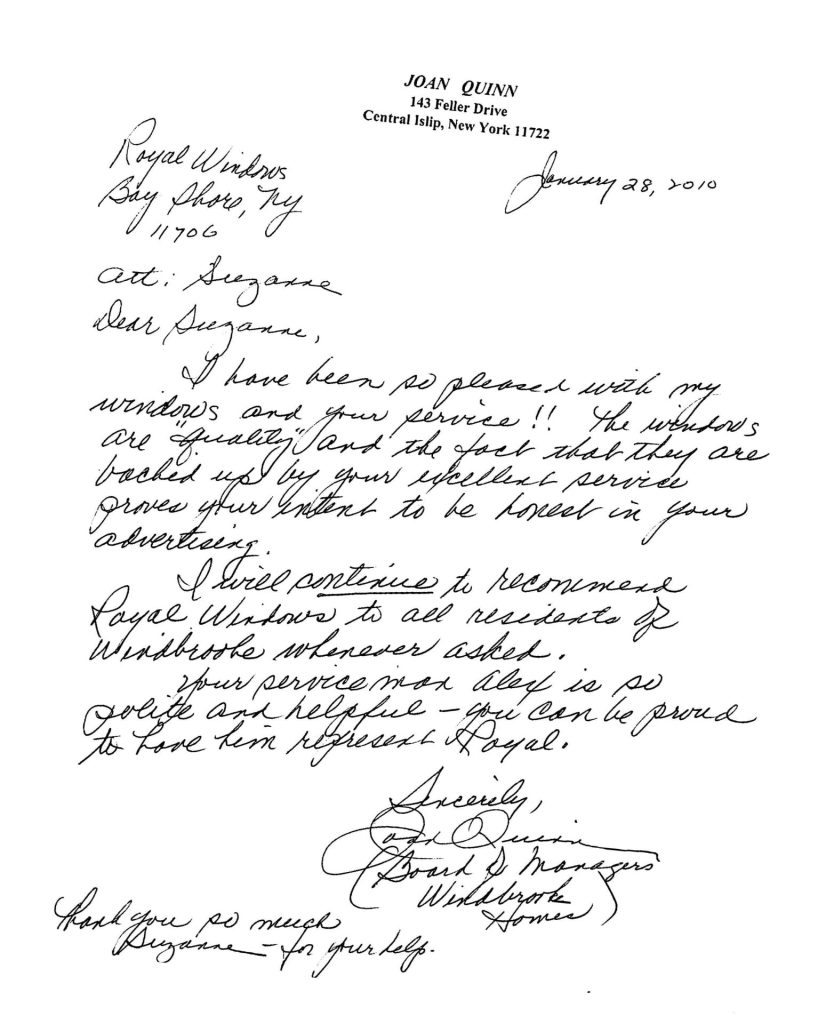 JOAN QUINN
143 Feller Drive
Central Islip, New York 11722
Royal Windows
Bay Shore, Ny
11706
January 28, 2010
Att: Suzanne
Dear Suzanne,
I have been so pleased with my
windows and your service!! The windows
are "quality" and the fact that they are
backed up by your excellent service
proves your intent to be honest in your
advertising.
I will continue to recommend
Royal Windows to all residents of
Windbrooke whenever asked.
Your service man Alex is so
polite and helpful – you can be proud
to have him represent Royal.
Sincerely,
Joan Quinn
(Board of Managers
Windbrooke
Homes)
Thank you so much
Suzanne – for your help.